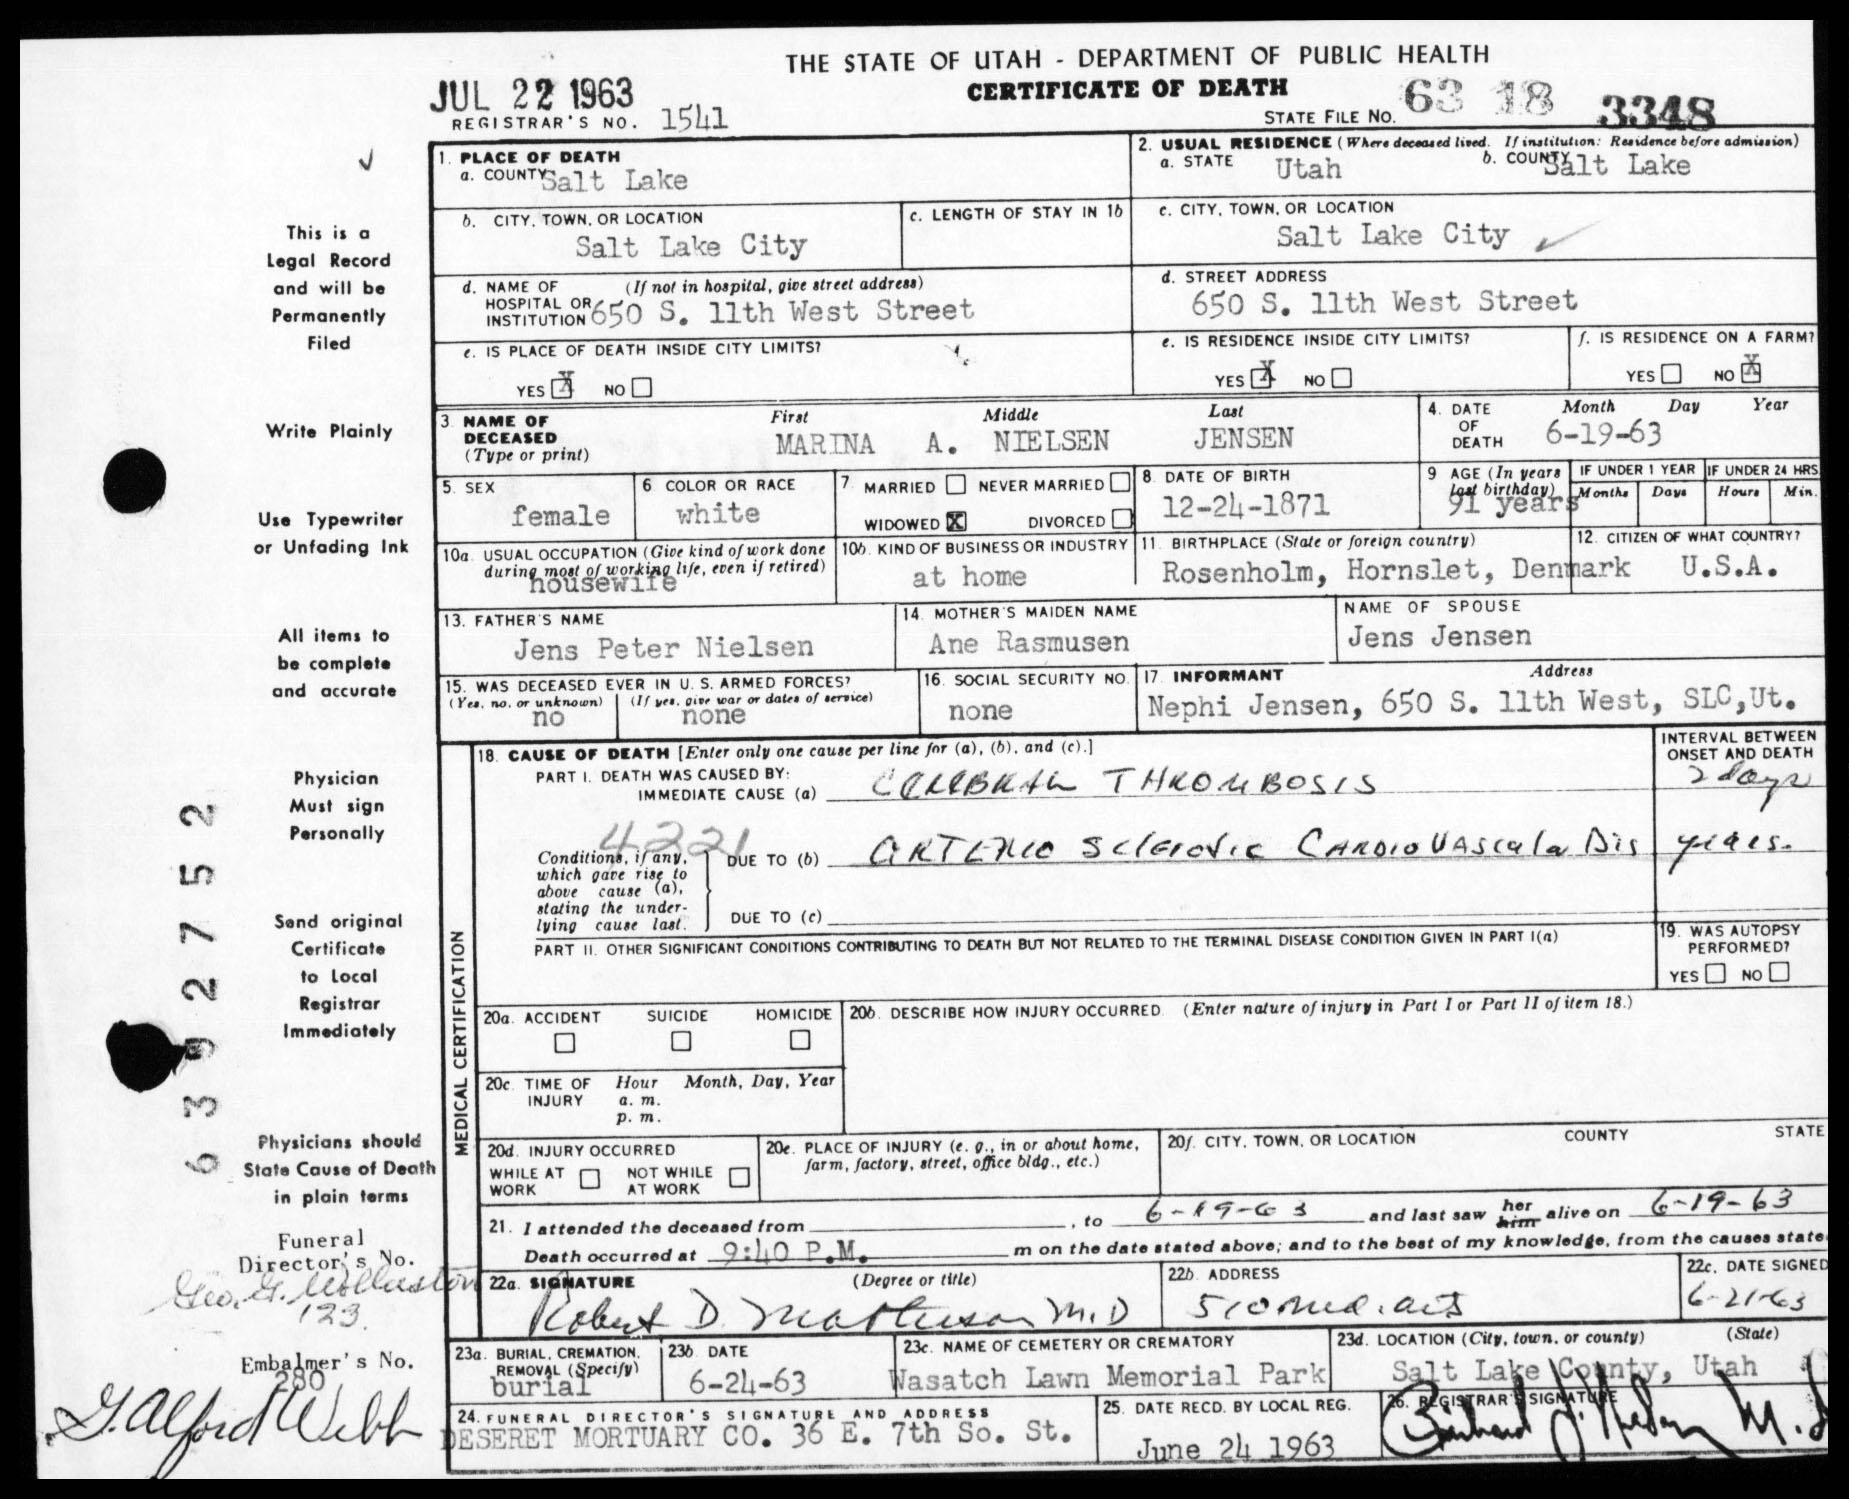 THE STATE OF UTAH - DEPARTMENT OF PUBLIC HEALTH
CERTIFICATE OF DEATH
JUL 22 1963
REGISTRAR'S NO. 1541
STATE FILE NO. 63 18 3348
1. PLACE OF DEATH
a. COUNTY Salt Lake
2. USUAL RESIDENCE (Where deceased lived. If institution: Residence before admission)
a. STATE Utah b. COUNTY Salt Lake
b. CITY, TOWN, OR LOCATION
Salt Lake City
c. LENGTH OF STAY IN 1b
c. CITY, TOWN, OR LOCATION
Salt Lake City
d. NAME OF HOSPITAL OR INSTITUTION (If not in hospital, give street address)
650 S. 11th West Street
d. STREET ADDRESS
650 S. 11th West Street
e. IS PLACE OF DEATH INSIDE CITY LIMITS?
YES X NO
e. IS RESIDENCE INSIDE CITY LIMITS?
YES X NO
f. IS RESIDENCE ON A FARM?
YES NO X
3. NAME OF DECEASED (Type or print)
First Middle Last
MARINA A. NIELSEN JENSEN
4. DATE OF DEATH
Month Day Year
6-19-63
5. SEX
female
6 COLOR OR RACE
white
7. MARRIED NEVER MARRIED
WIDOWED X DIVORCED
8. DATE OF BIRTH
12-24-1871
9 AGE (In years last birthday)
91 years
IF UNDER 1 YEAR
Months Days
IF UNDER 24 HRS.
Hours Min.
10a. USUAL OCCUPATION (Give kind of work done during most of working life, even if retired)
housewife
10b. KIND OF BUSINESS OR INDUSTRY
at home
11. BIRTHPLACE (State or foreign country)
Rosenholm, Hornslet, Denmark
12. CITIZEN OF WHAT COUNTRY?
U.S.A.
13. FATHER'S NAME
Jens Peter Nielsen
14. MOTHER'S MAIDEN NAME
Ane Rasmusen
NAME OF SPOUSE
Jens Jensen
15. WAS DECEASED EVER IN U. S. ARMED FORCES?
(Yes, no, or unknown) (If yes, give war or dates of service)
no none
16. SOCIAL SECURITY NO.
none
17. INFORMANT Address
Nephi Jensen, 650 S. 11th West, SLC,Ut.
MEDICAL CERTIFICATION
18. CAUSE OF DEATH [Enter only one cause per line for (a), (b), and (c).]
INTERVAL BETWEEN ONSET AND DEATH
PART I. DEATH WAS CAUSED BY:
IMMEDIATE CAUSE (a) CEREBRAL THROMBOSIS 2 days
4221
Conditions, if any, which gave rise to above cause (a), stating the underlying cause last.
DUE TO (b) ARTERIO Sclerotic CARDIOVAscular Dis years.
DUE TO (c)
PART II. OTHER SIGNIFICANT CONDITIONS CONTRIBUTING TO DEATH BUT NOT RELATED TO THE TERMINAL DISEASE CONDITION GIVEN IN PART I(a)
19. WAS AUTOPSY PERFORMED?
YES NO
20a. ACCIDENT SUICIDE HOMICIDE
20b. DESCRIBE HOW INJURY OCCURRED. (Enter nature of injury in Part I or Part II of item 18.)
20c. TIME OF INJURY
Hour Month, Day, Year
a. m.
p. m.
20d. INJURY OCCURRED
WHILE AT WORK NOT WHILE AT WORK
20e. PLACE OF INJURY (e. g., in or about home, farm, factory, street, office bldg., etc.)
20f. CITY, TOWN, OR LOCATION COUNTY STATE
21. I attended the deceased from , to 6-19-63 and last saw her him alive on 6-19-63
Death occurred at 9:40 P.M. m on the date stated above; and to the best of my knowledge, from the causes state
22a. SIGNATURE (Degree or title)
Robert D. Matheson M.D
22b. ADDRESS
510 Med. arts
22c. DATE SIGNED
6-21-63
23a. BURIAL, CREMATION, REMOVAL (Specify)
burial
23b. DATE
6-24-63
23c. NAME OF CEMETERY OR CREMATORY
Wasatch Lawn Memorial Park
23d. LOCATION (City, town, or county) (State)
Salt Lake County, Utah
24. FUNERAL DIRECTOR'S SIGNATURE AND ADDRESS
DESERET MORTUARY CO. 36 E. 7th So. St.
25. DATE RECD. BY LOCAL REG.
June 24 1963
26. REGISTRAR'S SIGNATURE
M.D
This is a
Legal Record
and will be
Permanently
Filed
Write Plainly
Use Typewriter
or Unfading Ink
All items to
be complete
and accurate
Physician
Must sign
Personally
Send original
Certificate
to Local
Registrar
Immediately
Physicians should
State Cause of Death
in plain terms
Funeral
Director's No.
Geo. G. Wollaston
123.
Embalmer's No.
280
G. Alford Webb
63 92752